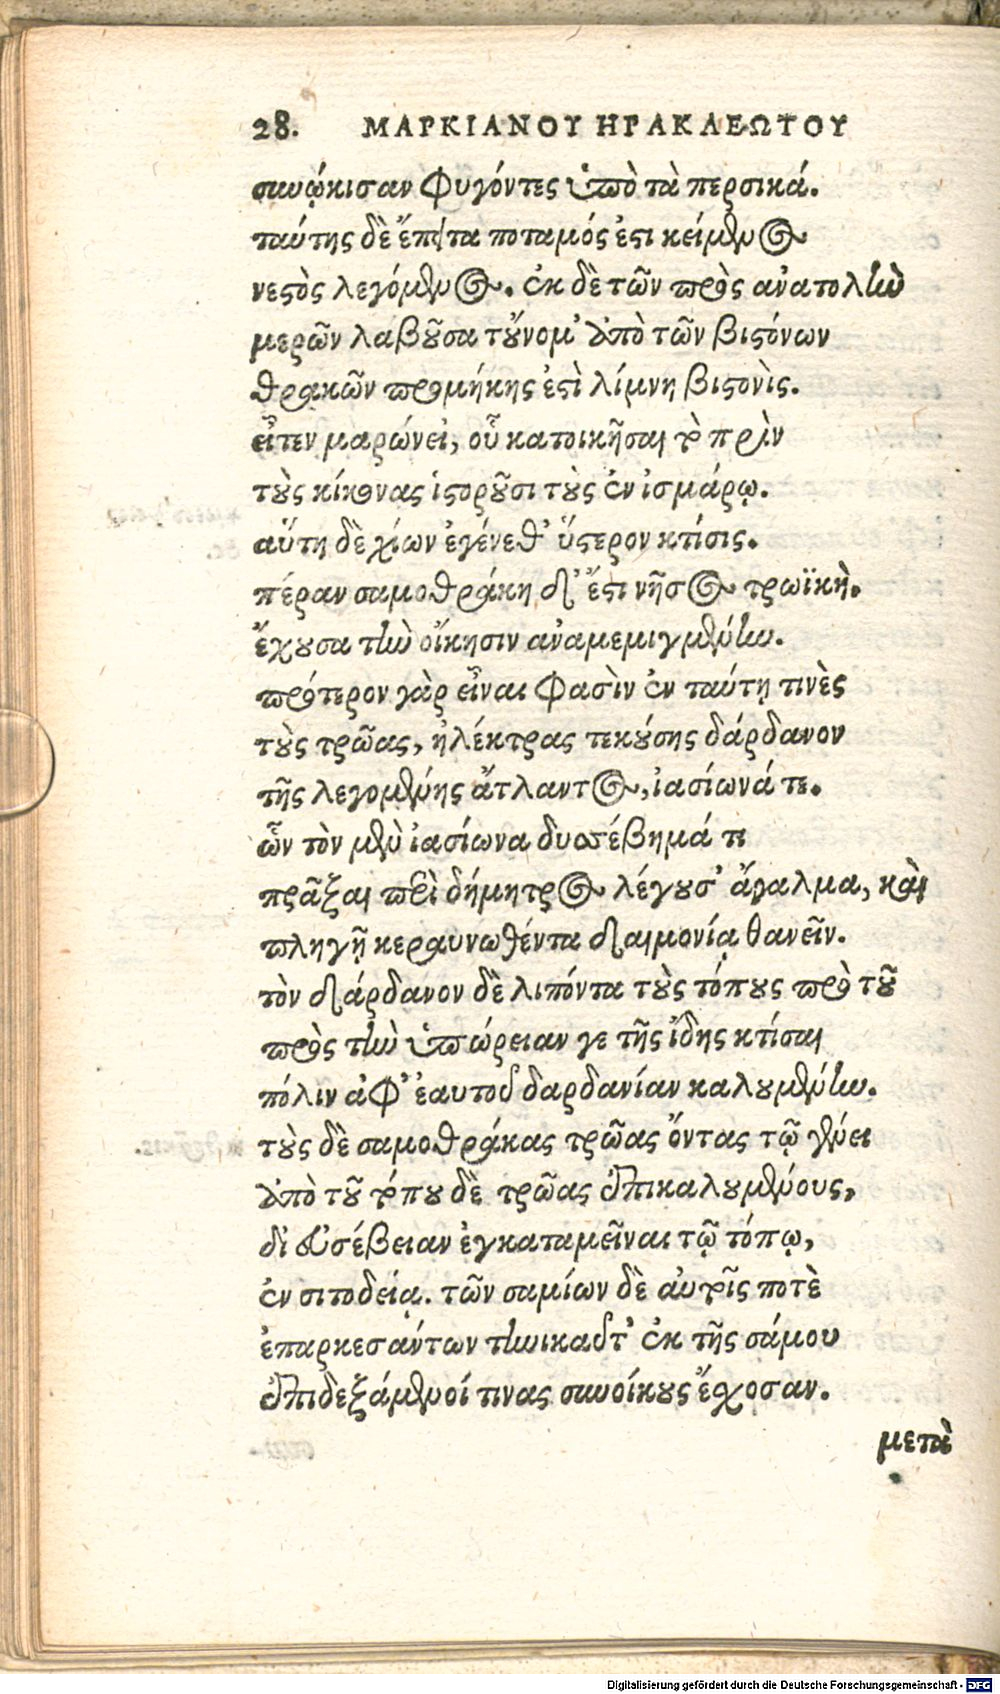 28. ΜΑΡΚΙΑΝΟΥ ΗΡΑΚΛΕΩΤΟΥ
συνῴκισαν φυγόντες ὑπὸ τὰ περσικά.
ταύτης δὲ ἔπειτα ποταμός ἐστι κείμενος
νεστὸς λεγόμενος. ἐκ δὲ τῶν πρὸς ἀνατολὴν
μερῶν λαβοῦσα τοὔνομ' ἀπὸ τῶν βιστόνων
θρᾳκῶν προμήκης ἐστὶ λίμνη βιστονὶς.
εἶτεν μαρώνει, οὗ κατοικῆσαι τὸ πρὶν
τοὺς κίκονας ἱστοροῦσι τοὺς ἐν ἰσμάρῳ.
αὕτη δὲ χίων ἐγένεθ' ὕστερον κτίσις.
πέραν σαμοθρᾴκη δ' ἔστι νῆσος τρωϊκὴ.
ἔχουσα τὴν οἴκησιν ἀναμεμιγμένην.
πρότερον γὰρ εἶναι φασὶν ἐν ταύτῃ τινὲς
τοὺς τρῶας, ἠλέκτρας τεκούσης δάρδανον
τῆς λεγομένης ἄτλαντος, ἰασίωνά τε.
ὧν τὸν μὲν ἰασίωνα δυσσέβημά τι
πρᾶξαι περὶ δήμητρος λέγουσ' ἄγαλμα, καὶ
πληγῇ κεραυνωθέντα δαιμονίᾳ θανεῖν.
τὸν δάρδανον δὲ λιπόντα τοὺς τόπους πρὸ τοῦ
πρὸς τὴν ὑπώρειαν γε τῆς ἴδης κτίσαι
πόλιν ἀφ' ἑαυτοῦ δαρδανίαν καλουμένην.
τοὺς δὲ σαμοθρᾷκας τρῶας ὄντας τῷ γένει
ἀπὸ τοῦ τόπου δὲ τρῶας ἐπικαλουμένους,
δι' εὐσέβειαν ἐγκαταμεῖναι τῷ τόπῳ,
ἐν σιτοδείᾳ. τῶν σαμίων δὲ αὐτοῖς ποτὲ
ἐπαρκεσάντων τηνικαῦτ' ἐκ τῆς σάμου
ἐπιδεξάμενοί τινας συνοίκους ἔχοσαν.
μετὰ
Digitalisierung gefördert durch die Deutsche Forschungsgemeinschaft - DFG